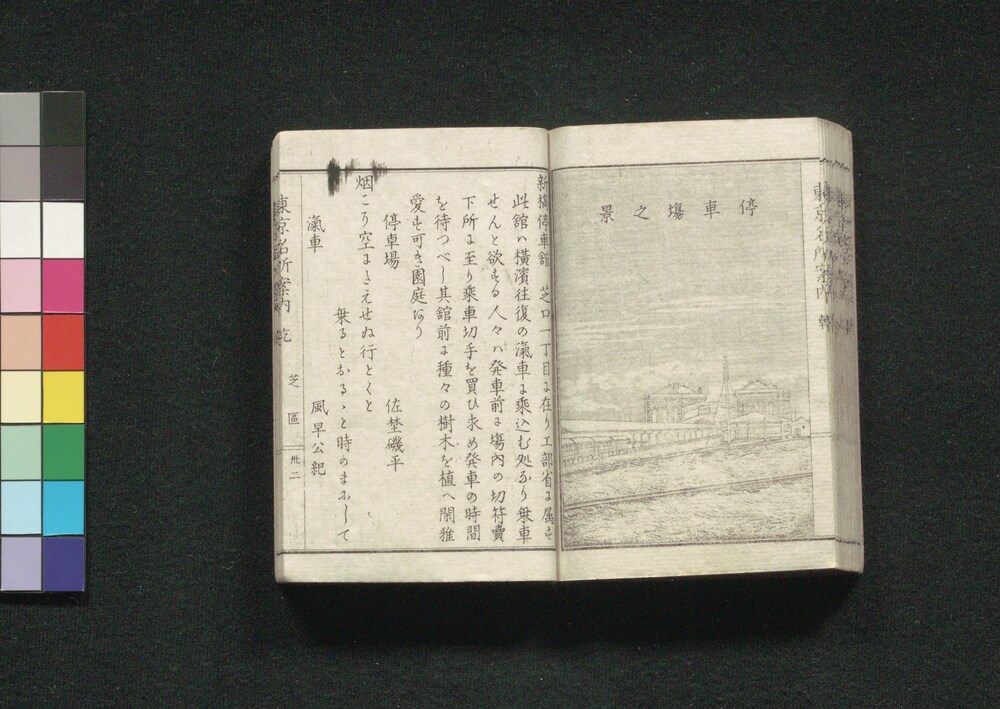 停車塲之景
新橋停車舘 芝口一丁目ニ在り工部省ニ属す
此舘ハ横濱往復の滊車ニ乘込む処なり乗車
せんと欲する人々ハ発車前ニ塲内の切符賣
下所ニ至り乘車切手を買ひ求め発車の時間
を待つべし其舘前ニ種々の樹木を植へ閑雅
愛す可き園庭なり
停車場 佐埜磯平
烟こう空にきえせぬ行とくと
乗るとおるゝと時のまにして
滊車 風早公紀
東京名所案内 乾
芝區
卅二
東京名所案内